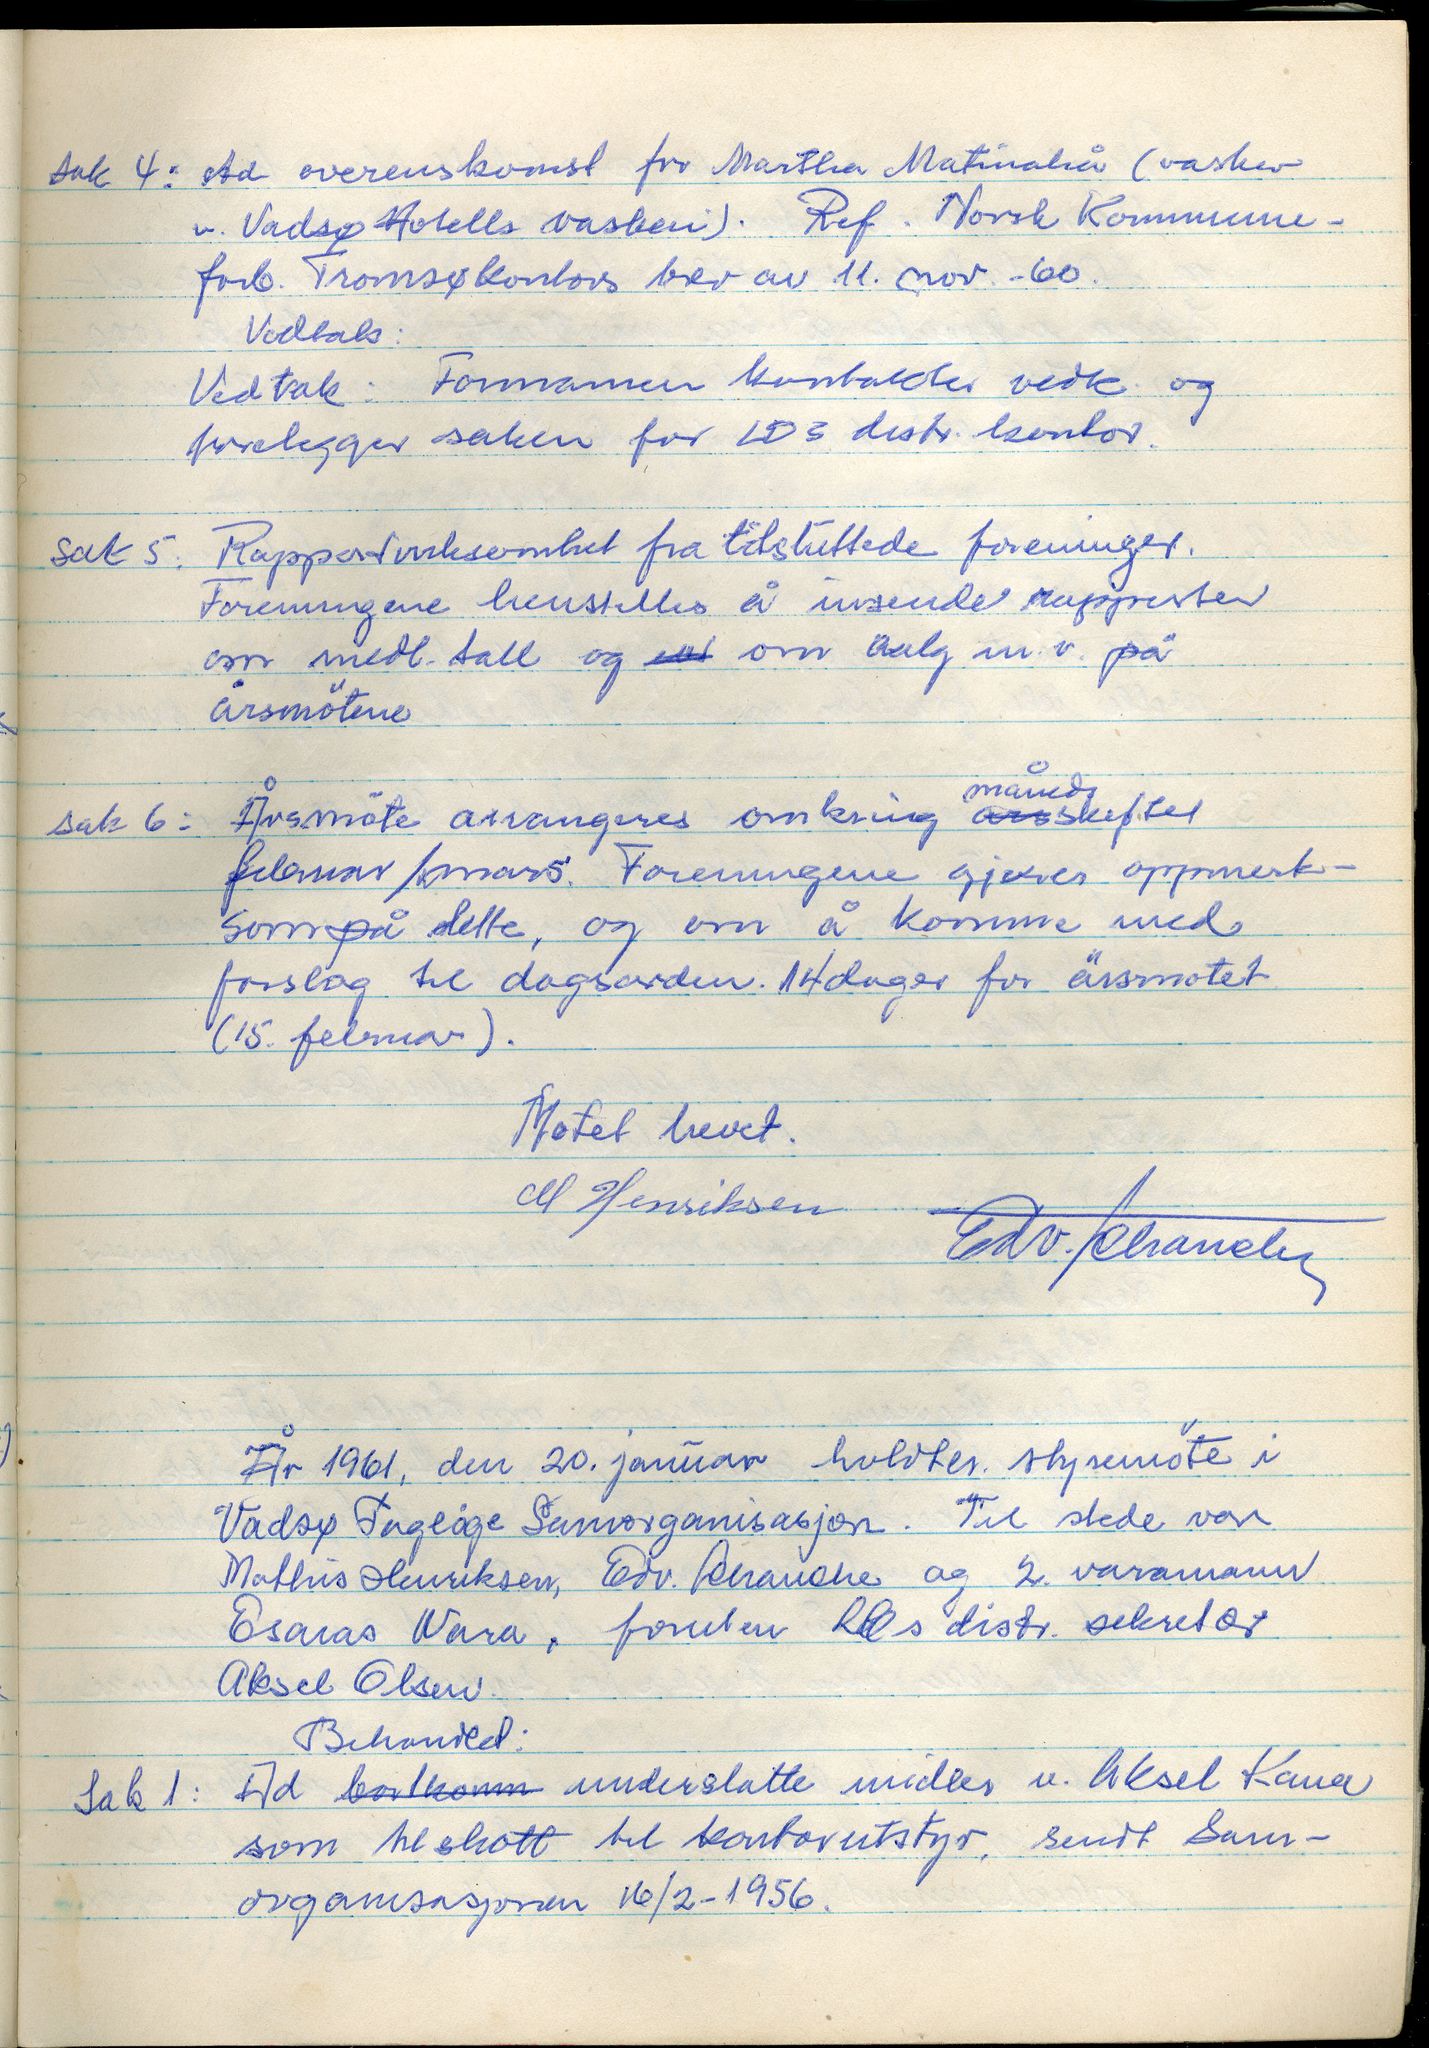 Sak 4: Ad overenskomst for Martha Matinalå (vasker
v. Vadsø Hotells vaskeri). Ref. Norsk Kommune-
forb. Tromsøkontors brev av 11. nov. -60.
Vedtak:
Vedtak: Formannen kontakter vedk. og
forelegger saken for LOs distr. kontor.
Sak 5: Rapportvirksomhet fra tilsluttede foreninger.
Foreningene henstilles å innsende rapporter
om medl. tall og om valg m.v. på
årsmötene
Sak 6: Årsmöte arrangeres omkring månedsskeftet
februar/mars. Foreningene gjøres oppmerk-
som på dette, og om å komme med
forslag til dagsorden 14 dager för årsmötet
(15. februar).
Mötet hevet.
M Henriksen
Edv. Schanche
År 1961, den 20. januar holdtes styremöte i
Vadsø Faglige Samorganisasjon. Til stede var
Mathis Henriksen, Edv. Schanche og 2. varamann
Esaias Wara, foruten LOs distr. sekretær
Aksel Olsen.
Behandlet:
Sak 1: Ad bortkomm underslåtte midler v. Aksel Kana
som tilskott til kontorutstyr, sendt Sam-
organisasjonen 16/2-1956.